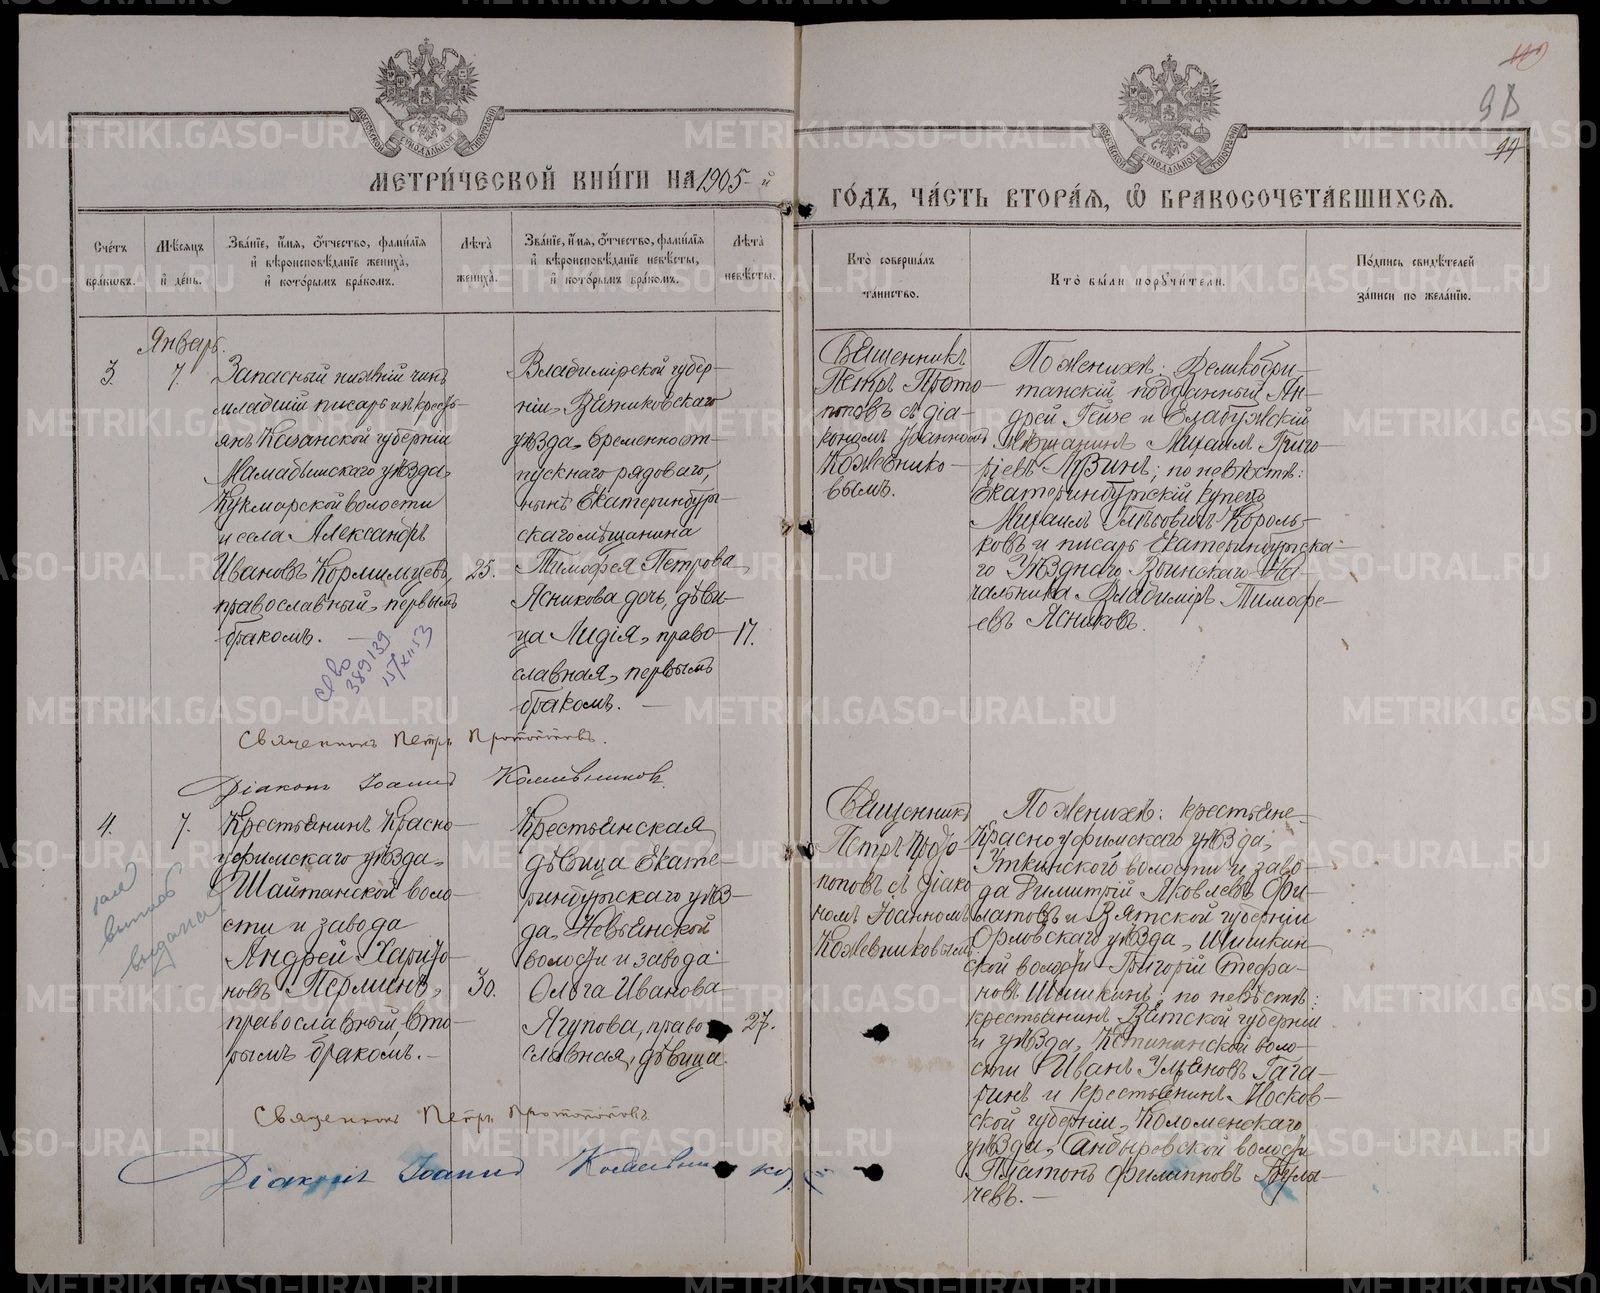 МЕТРИ́ЧЕСКОЙ КНИ́ГИ НА 1905-й
ГО́ДЪ, ЧА́СТЬ ВТОРА́Я, Ѡ БРАКОСОЧЕТА́ВШИХСЯ.
Сче́тъ бра́кωвъ.
Мѣ́сяцъ и́ де́нь.
Зва́нїе, и́мя, ѻ́тчество, фами́лїя и́ вѣроисповѣ́данїе жениха̀, и́ кото́рымъ бра́комъ.
Лѣ́та жениха̀.
Зва́нїе, и́мя, ѻ́тчество, фами́лїя и́ вѣроисповѣ́данїе невѣ́сты, и́ кото́рымъ бра́комъ.
Лѣ́та невѣ́сты.
Кто̀ соверша́лъ та́инство.
Кто̀ бы́ли поручи́тели.
По́дпись свидѣ́телей за́писи по жела́нїю.
Январь.
3.
7.
Запасный нижній чинъ
младшій писарь изъ кресть-
янъ Казанской губерніи
Мамадышскаго уѣзда,
Кукморской волости
и села Александръ
Ивановъ Кормильцевъ,
православный, первымъ
бракомъ. —
25.
Владимірской губер-
ніи, Вязниковскаго
уѣзда, временно от-
пускнаго рядоваго,
нынѣ Екатеринбург-
скаго мѣщанина
Тимофея Петрова
Ясникова дочь, дѣви-
ца Лидія, право-
славная, первымъ
бракомъ. —
17.
Священникъ
Петръ Прото-
поповъ съ діа-
кономъ Іоанномъ
Кожевнико-
вымъ.
По женихѣ: Великобри-
танскій подданный Ан-
дрей Гейзе и Елабужскій
мѣщанинъ Михаилъ Григо-
рьевъ ; по невѣстѣ:
Екатеринбургскій купецъ
Михаилъ Глѣбовичъ Король-
ковъ и писарь Екатеринбургска-
го Уѣзднаго Воинскаго На-
чальника Владиміръ Тимофе-
евъ Ясниковъ.
389139
15/XII 53
Священникъ Петръ Протопоповъ.
Діаконъ Іоаннъ Кожевниковъ.
4.
7.
Крестьянинъ Красно-
уфимскаго уѣзда,
Шайтанской воло-
сти и завода
Андрей Харито-
новъ Перминъ,
православный, вто-
рымъ бракомъ. —
30.
Крестьянская
дѣвица Екате-
ринбургскаго уѣз-
да, Невьянской
волости и завода
Ольга Иванова
Ягупова, право-
славная, дѣвица.
27.
Священникъ
Петръ Прото-
поповъ съ діако-
номъ Іоанномъ
Кожевниковымъ.
По женихѣ: крестьяне
Красноуфимскаго уѣзда,
Уткинской волости и заво-
да Димитрій Яковлевъ Фи-
латовъ и Вятской губерніи
Орловскаго уѣзда, Шишкин-
ской волости Григорій Стефа-
новъ Шишкинъ; по невѣстѣ:
крестьянинъ Вятской губерніи
и уѣзда, воло-
сти Иванъ Гага-
ринъ и крестьянинъ Москов-
ской губерніи, Коломенскаго
уѣзда, волости
Платонъ Филипповъ
чевъ. —
выписъ
выдана
Священникъ Петръ Протопоповъ
Діаконъ Іоаннъ Кожевниковъ
METRIKI.GASO-URAL.RU